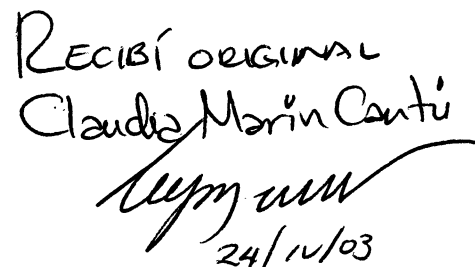 RECIBÍ ORIGINAL
Claudia Marin Cantú
24/IV/03